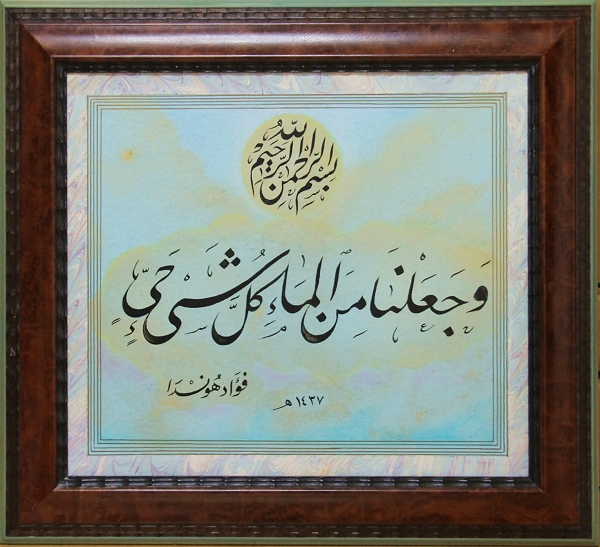 بسم الله الرحمن الرحيم
وَجَعَلْنَا مِنَ الْمَاءِ كُلَّ شَيْءٍ حَيٍّ
فؤاد هوندا
١٤٣٧ هـ